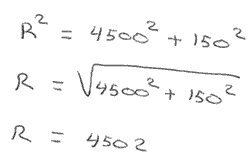 R² = 4500² + 150²
R = √4500² + 150²
R = 4502